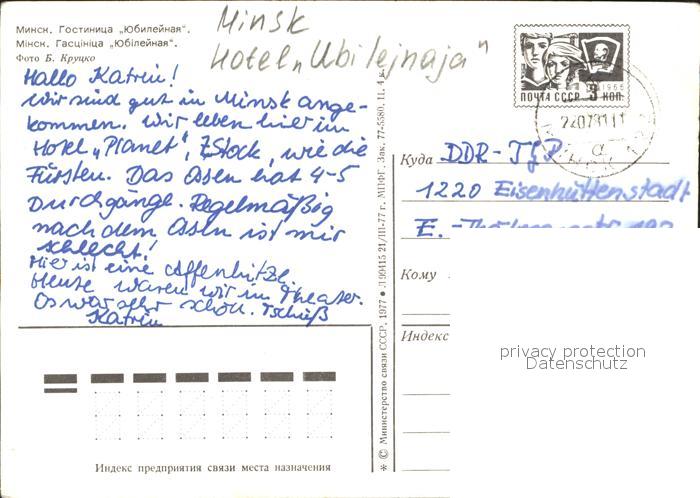 Минск. Гостиница „Юбилейная“.
Мінск. Гасцініца „Юбілейная“.
Фото Б. Круцко
Minsk
Hotel „Ubilejnaja"
Hallo Katrin!
Wir sind gut in Minsk ange-
kommen. Wir leben hier im
Hotel „Planet", 7. Stock, wie die
Fürsten. Das Essen hat 4-5
Durchgänge. Regelmäßig
nach dem Essen ist mir
schlecht!
Hier ist eine Affenhitze.
Heute waren wir im Theater.
Es war sehr schön. Tschüß
Katrin
ПОЧТА СССР 3 КОП
1966
Куда DDR-
1220 Eisenhüttenstadt
E.-
Кому
Индекс
privacy protection
Datenschutz
Индекс предприятия связи места назначения
* © Министерство связи СССР, 1977 • Л 99415 21/III-77 г. МПФГ. Зак. 77-5580. Ц. 4 к.